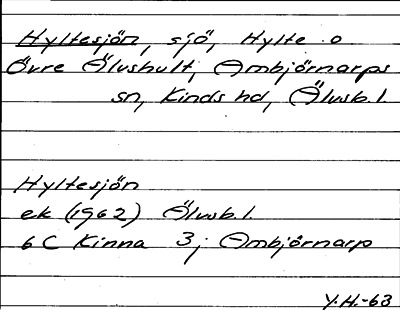 Hyltesjön, sjö, Hylte o
Övre Älushult, Ambjörnarps
sn, Kinds hd, Älvsb. l.
Hyltesjön
ek (1962) Älvsb. l.
6 C Kinna 3; Ambjörnarp
Y.H.-63